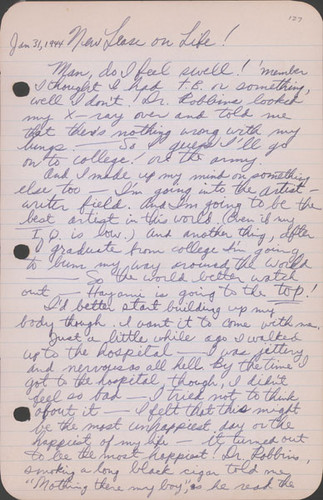 127
Jan 31, 1944 New Lease on Life!
Man, do I feel swell! 'member
I thought I had T.B. or something,
well I don't! Dr. Robbins looked
my X-ray over and told me
that there's nothing wrong with my
lungs. — So I guess I'll go
on to college! or the army.
And I made up my mind on something
else too — I'm going into the artist-
writer field. And I'm going to be the
best artist in this world. (Even if my
I.Q. is low.) And another thing, after
I graduate from college I'm going
to bum my way around the world
— So the world better watch
out — Hayami is going to the top!
I'd better start building up my
body though. I want it to come with me.
Just a little while ago I walked
up to the hospital — I was jittery
and nervous as all hell. By the time I
got to the hospital, though, I didn't
feel so bad — I tried not to think
about it — I felt that this might
be the most unhappiest day or the
happiest of my life — It turned out
to be the most happiest! Dr. Robbins,
smoking a long black cigar told me,
"Nothing there my boy," as he read the